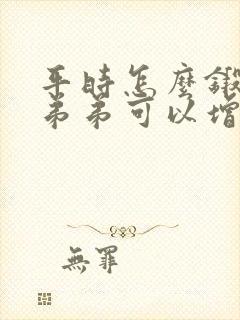 平時怎麼鍛
弟弟可以增
無罪